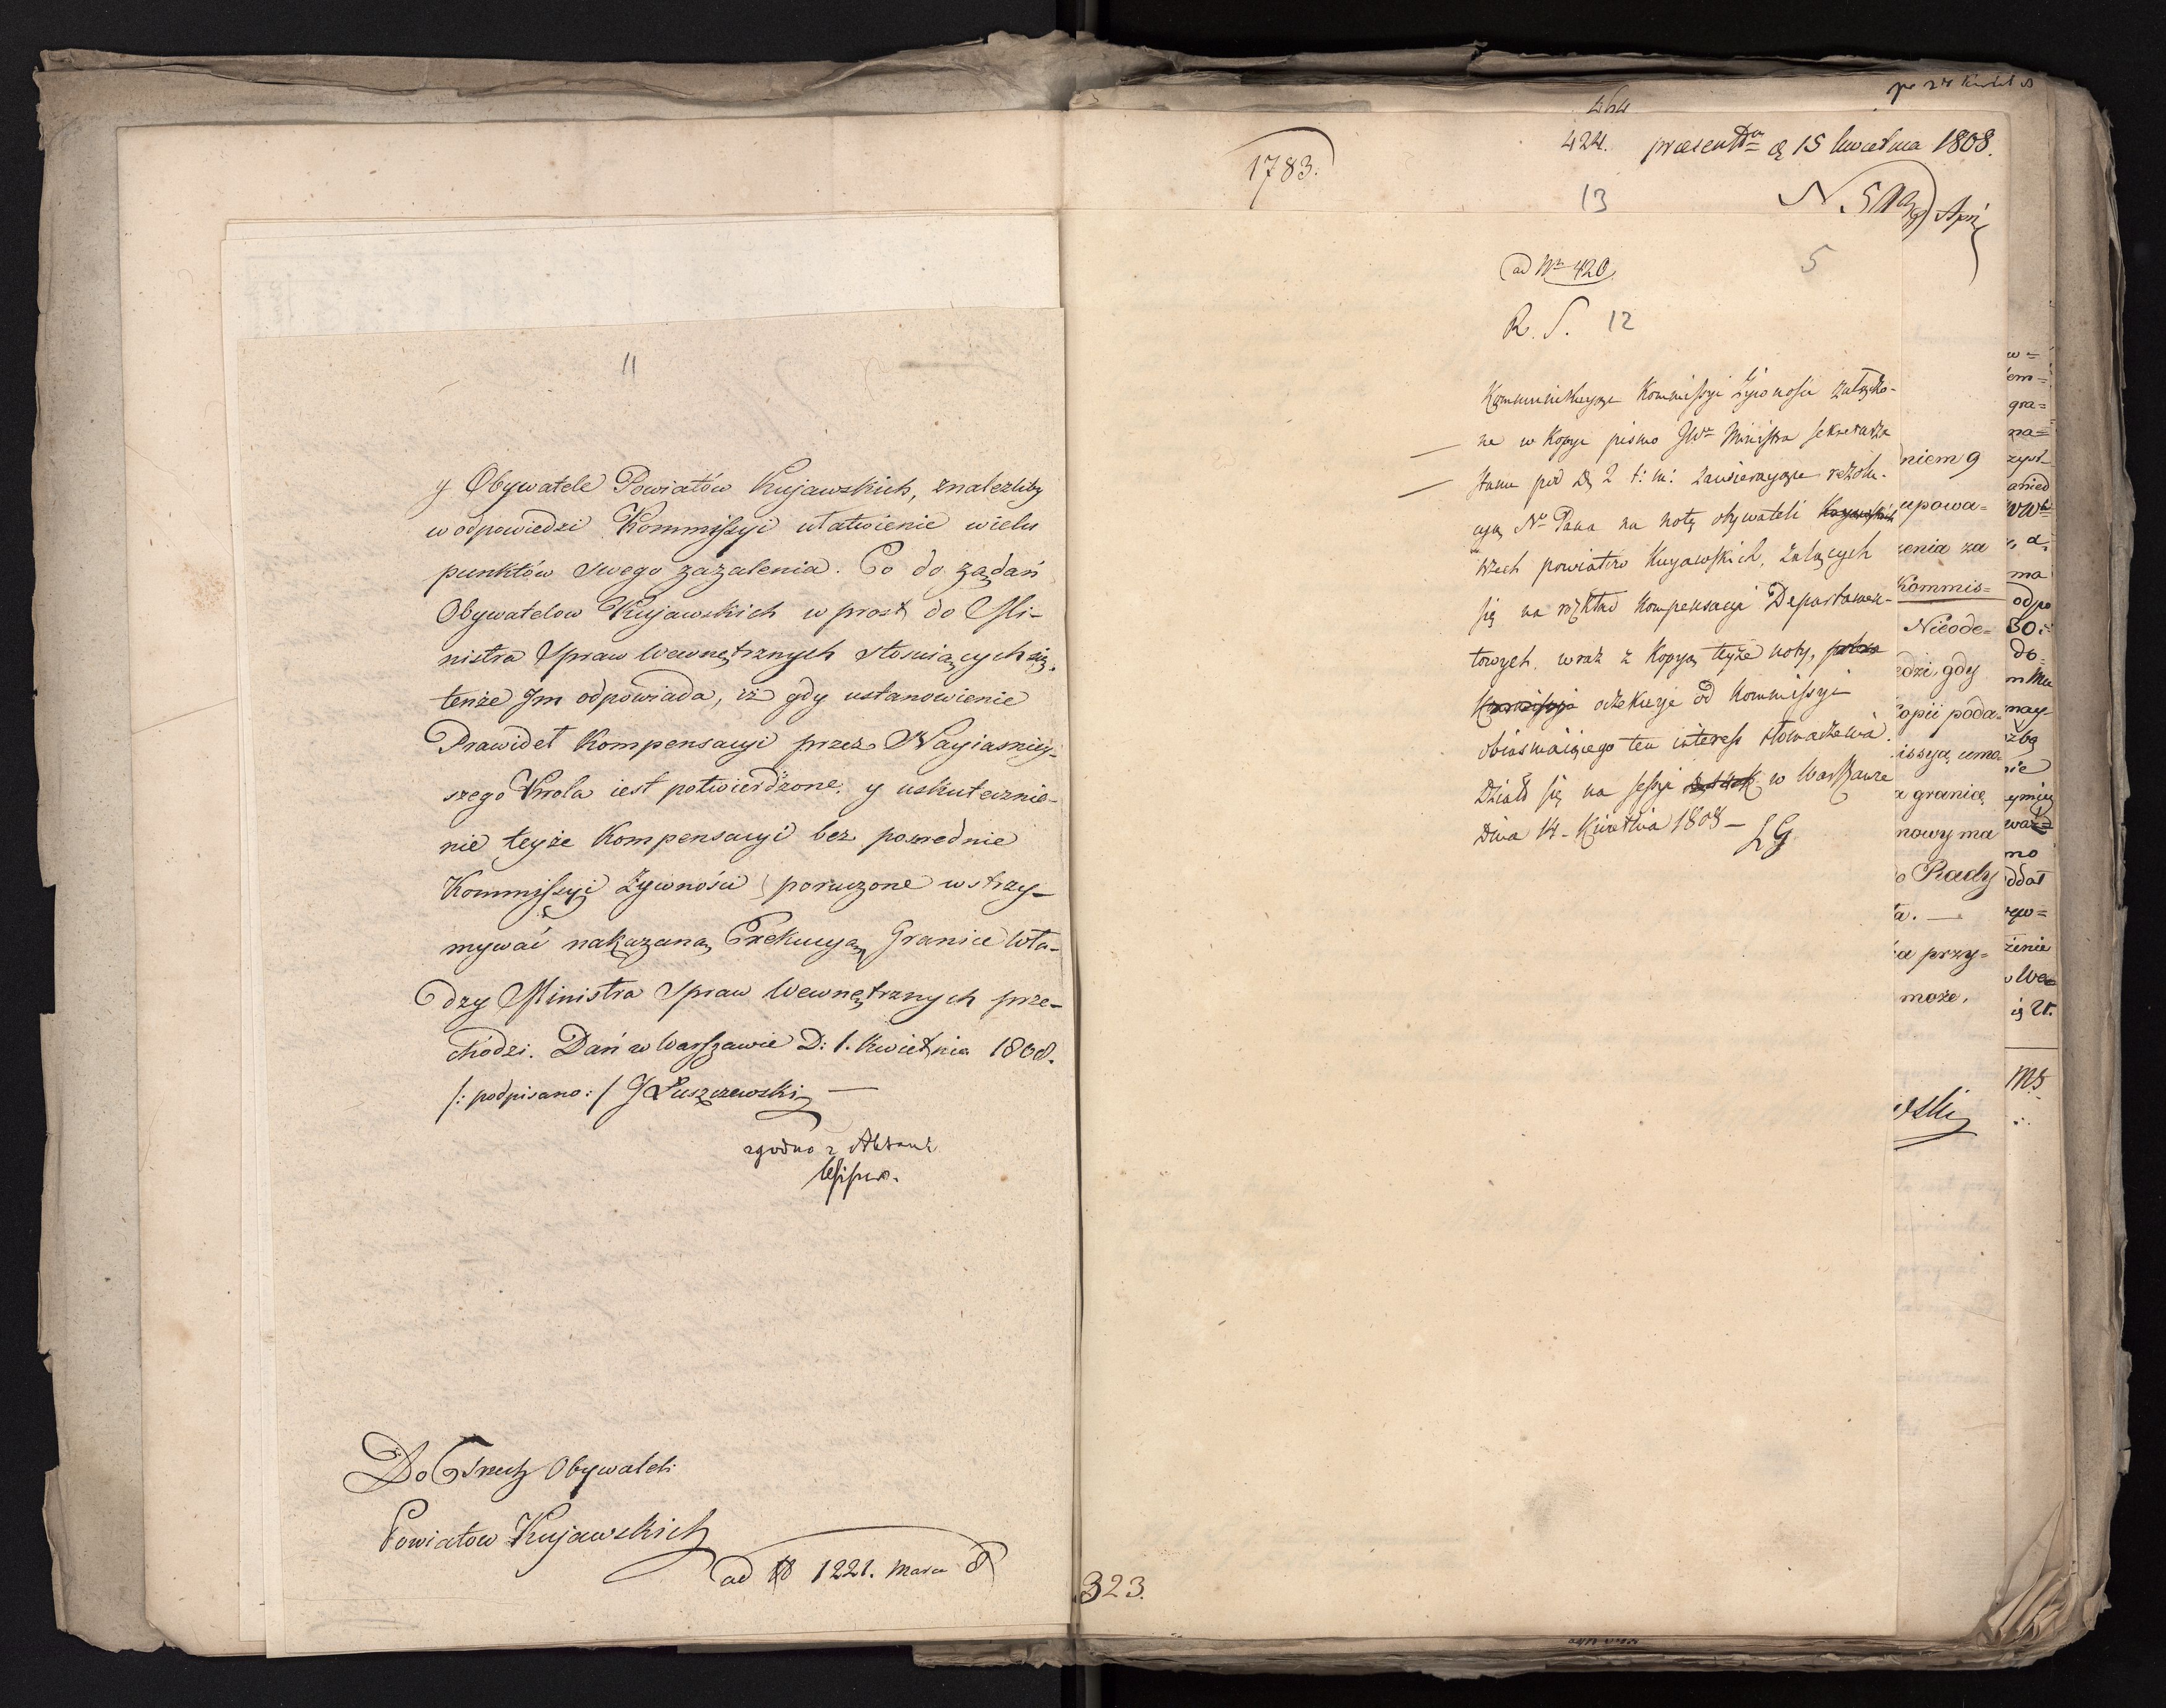 11
y Obywatele Powiatów Kujawskich, znalezliby
w odpowiedzi Kommissyi ułatwienie wielu
punktów swego zażalenia. Co do żądań
Obywatelow Kujawskich w prost do Mi-
nistra Spraw Wewnętrznych stosuiących się,
tenże Jm odpowiada, iż gdy ustanowienie
Prawideł Kompensacyi przez Nayiasniey-
szego Krola iest potwierdzone, y uskutecznie-
nie teyże Kompensacyi bez posrednie
Kommissyi Żywności poruczone wstrzy-
mywać nakazaną Exekucyą, Granice Wła-
dzy Ministra Spraw Wewnętrznych prze-
chodzi. Dań w Warszawie D: 1. Kwietnia 1808.
/: podpisano: / J Łuszczewski —
zgodno z Aktami
Do Obywateli
Powiatow Kujawskich
ad 1221. Marca 8
1783.
464
424. praesentm d 15 Kwietnia 1808.
13
5
ad Nr 420.
R. S. 12
Kommunikuyąc Kommissyi Żywności załączo-
ne w Kopyi pismo JWo Ministra Sekretarza
Stanu pod D 2 t: m: zawieraiące rezolu-
cyą No Pana na notę obywateli Kuyawskich
trzech powiatów Kuyawskich, żalących
się na rozkład Kompensacyi Departamen-
towych wraz z Kopyą teyże noty,
Kommissyi oczekuje od Kommissyi
obiasniaiącego ten interess tłomaczenia.
Działo się na sessyi w Warszawie
Dnia 14 Kwietnia 1808 — LG
323.
niem 9
upowa=
zenia za
Kommis=
Nieode=
edzi, gdy
Copii poda=
issya, uma=
a granicę
nowy ma
o Rady
ta. —
ia przy=
może.
wski
w=
em=
gra=
na=
ma
odpo
30.
do=
may-
nie
mo
ddał
żenie